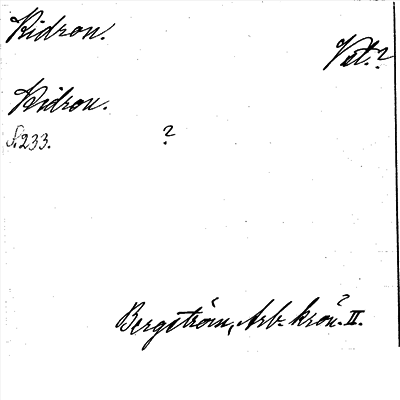 Kidron.
Vät.?
Kidron.
S. 233. ?
Bergström, Arb. krön. II.